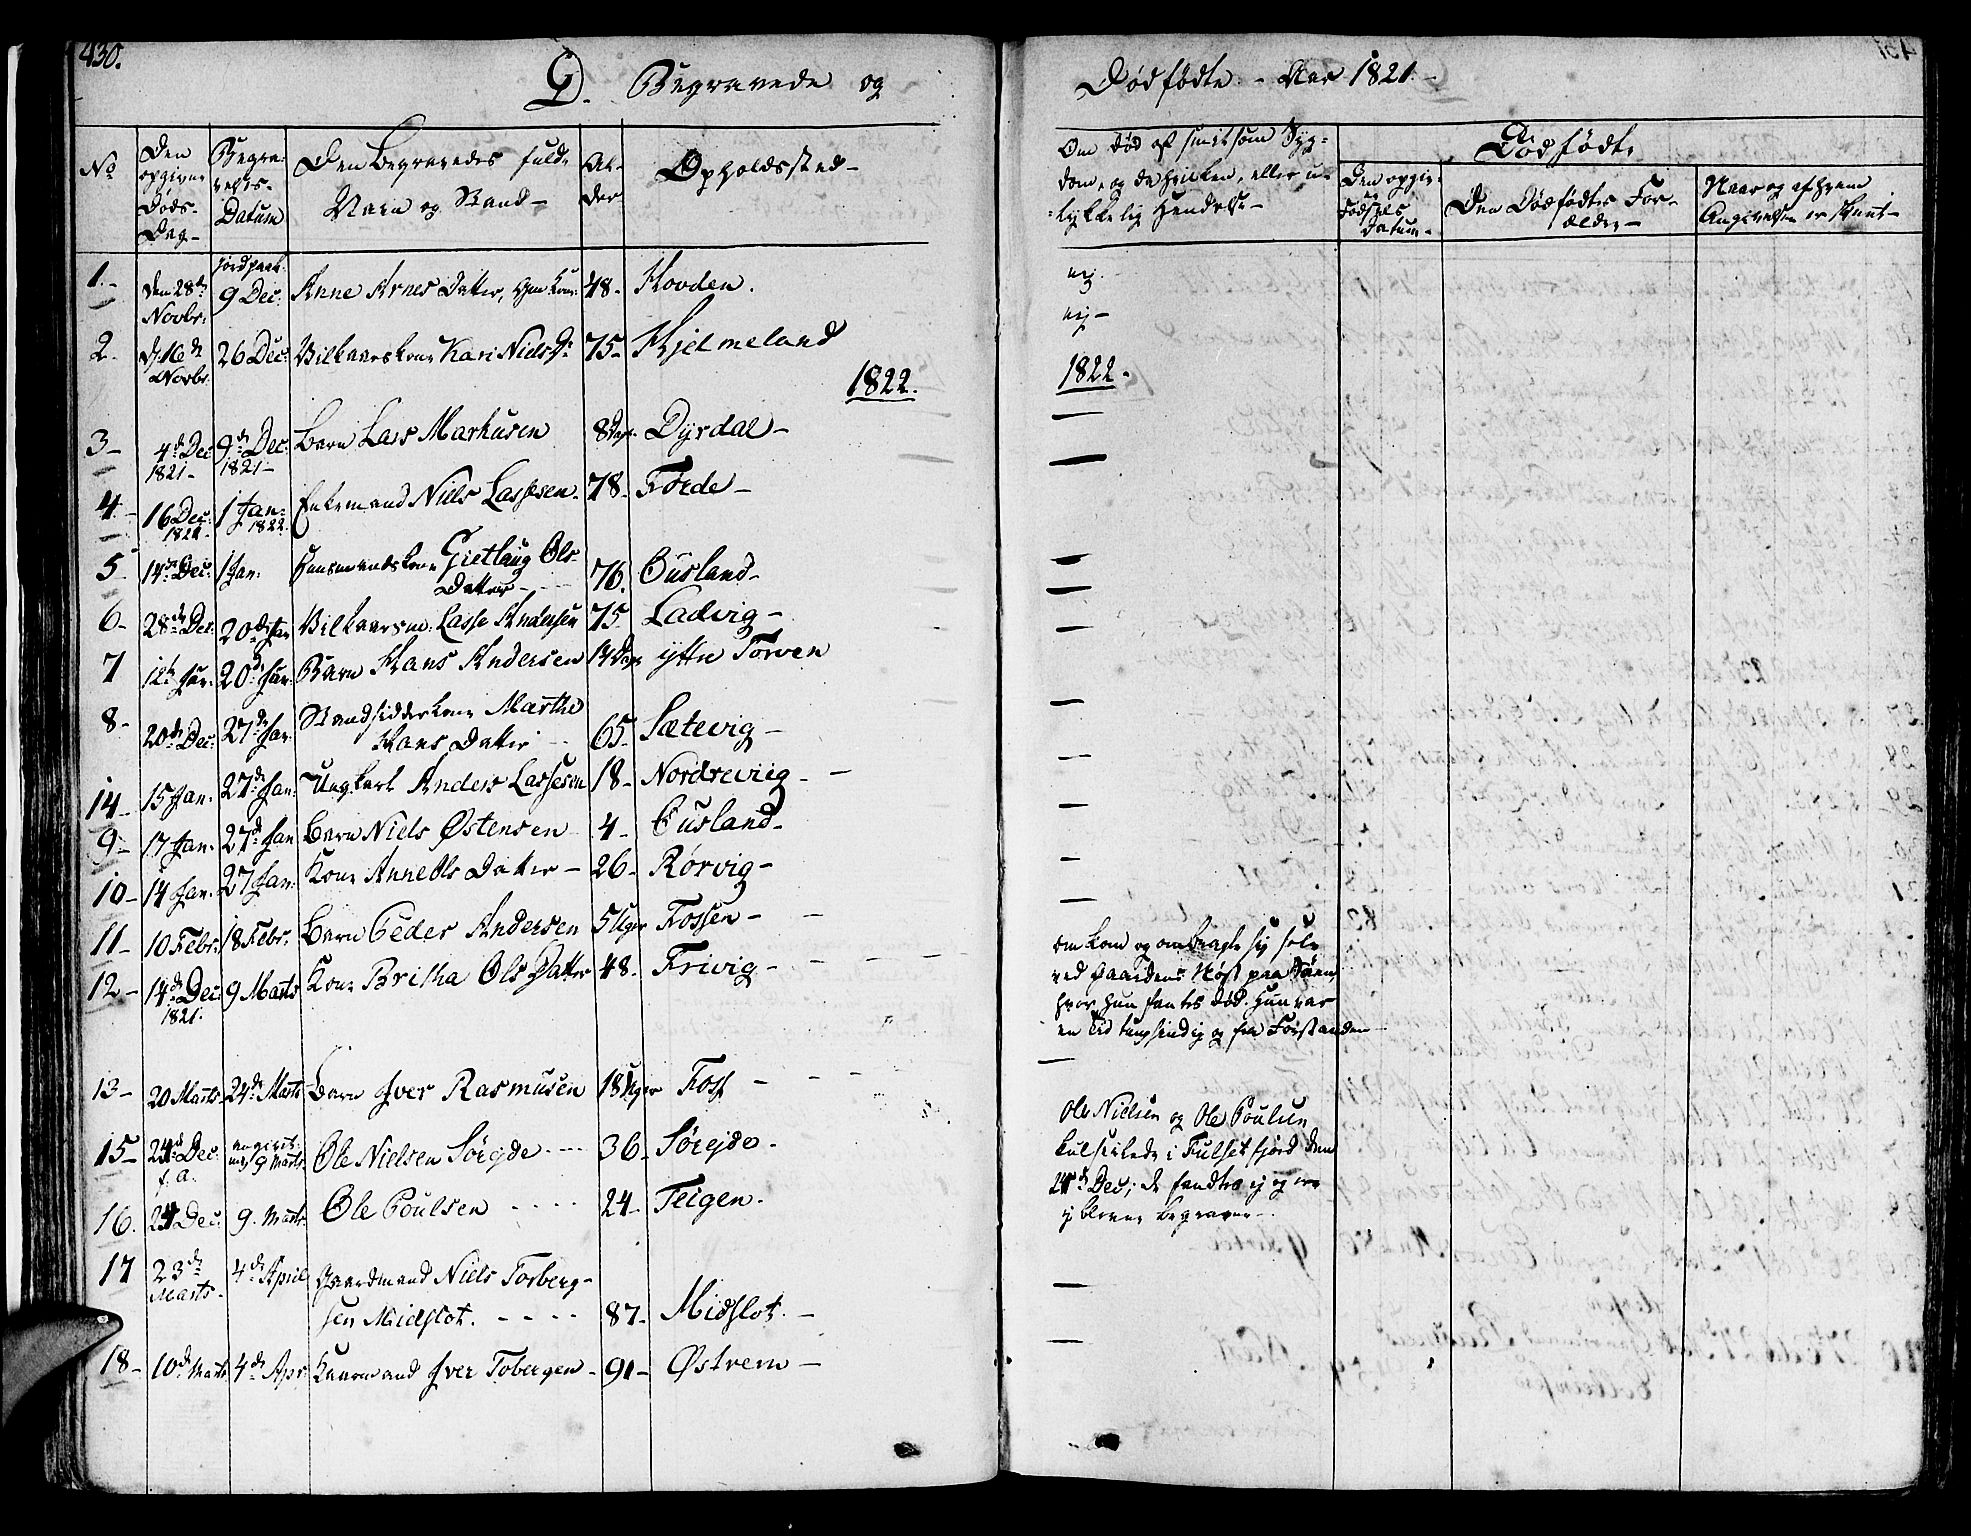 430.
D. Begravede og
Dødfødte - Aar 1821.-
No
Den opgivne Døds-Dag-
Begravelses-Datum
Den Begravedes fulde Navn og Stand-
Alder
Opholdssted-
Om død af smitsom Sygdom, og da hvilken, eller ulykkelig Hendelse-
Dødfødte
Den opgivne Fødsels Datum-
Den Dødfødtes Forældre-
Naar og af hvem Angivelsen er skeet-
1.- den 28de Novbr: jordpaak. 9 Dec: Anne Arnes Datter, 48- Hovden. nej.
2. d: 16de Novbr. 26 Dec: Vilkaarskone Kari Niels Dr 75- Hjelmeland nej-
1822. 1822.
3- 4de Dec 1821- 9de Dec: 1821- Barn Lars Markusen 8 Dage Dyrdal-
4.- 16 Dec: 1821. 1 Jan: 1822. Enkemand Niels Lassesen- 78- Førde-
5- 14de Dec: 1 Jan: Huusmandskone Gietlaug Ols Datter- 76. Ousland-
6- 28de Dec: 20de Jan Vilkaarsm: Lasse Andersen 75. Ladvig-
7 12te Jan: 20de Jan: Barn Hans Andersen 14 Dage yttre Torven
8- 20de Dec: 27de Jan: Strandsidderkone Marthe Hans Datter 65- Sætevig-
14- 15 Jan: 27de Jan: Ungkarl Anders Lassesen 18- Nordreviig-
9- 17 Jan: 27de Jan Barn Niels Østensen 4- Ousland-
10- 14 Jan: 27 Jan: Kone Anne Ols Datter- 26- Rørvig-
11- 10 Febr: 18 Febr. Barn Peder Andersen 5 Uger Fossen-
12- 14de Dec: 1821. 9 Marts Kone Britha Ols Datter 48- Frivig- omkom og ombragte sig selv
ved Gaardens Nøst paa Søen,
hvor hun fantes død. Hun var
en Tid tungsindig og fra Forstanden
13- 20 Marts- 24de Marts Barn Iver Rasmusen 18 Uger Foss -
15- 24de Dec: f. a. angivet 9 Marts Ole Nielsen Sørejde 36- Sørejde- Ole Nielsen og Ole Poulsen
kulseilede i Fulsetfjord den
16. 24 Dec: 9. Marts Ole Poulsen 24- Teigen. 24de Dec; de fandtes ej og ere
ej blevne begravne-
17 23de Marts- 4de April Gaardmand Niels Torberg-
sen Midslot. 87- Midslot.-
18- 10de Marts 4de Apr: Kaarmand Iver Tobergen- 91- Østrem-